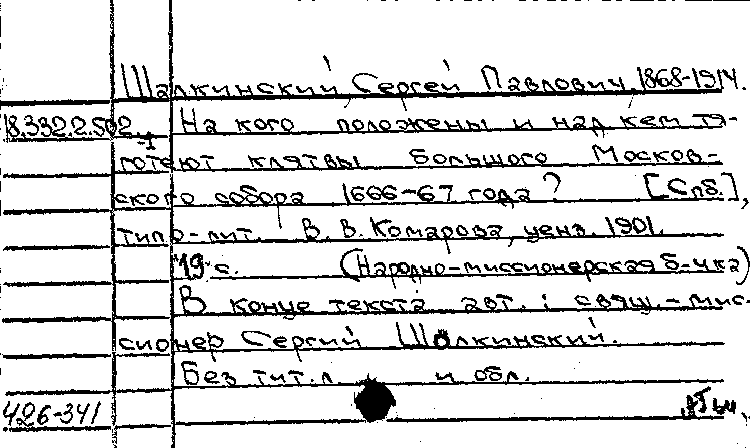 Шалкинский, Сергей Павлович, 1868-1914.
18.332.2.502-1 На кого положены и над кем тя-
готеют клятвы Большого Москов-
ского собора 1666-67 года? [Спб.],
типо-лит. В. В. Комарова, ценз. 1901.
19 с. (Народно-миссионерская б-чка)
В конце текста авт.: свящ.-мис-
сионер Сергий Шалкинский.
Без тит. л. и обл.
426-341